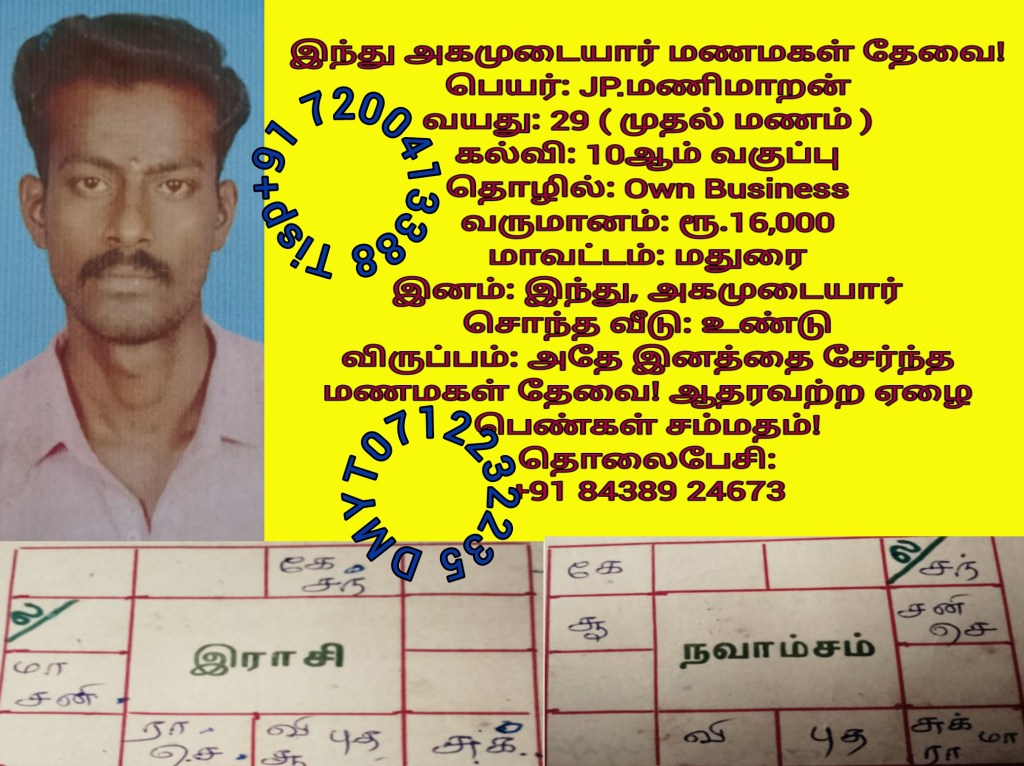 இந்து அகமுடையார் மணமகள் தேவை!
பெயர்: JP.மணிமாறன்
வயது: 29 ( முதல் மணம் )
கல்வி: 10ஆம் வகுப்பு
தொழில்: Own Business
வருமானம்: ரூ.16,000
மாவட்டம்: மதுரை
இனம்: இந்து, அகமுடையார்
சொந்த வீடு: உண்டு
விருப்பம்: அதே இனத்தை சேர்ந்த
மணமகள் தேவை! ஆதரவற்ற ஏழை
பெண்கள் சம்மதம்!
தொலைபேசி:
+91 84389 24673
Tisp+91 7200413388
DMYT0712232235
கே
சந்
ல
இராசி
மா
சனி
ரா
செ
வி
சூ
புத
சுக்
கே
ல
சந்
சூ
சனி
செ
நவாம்சம்
வி
புத
சுக்
ரா
மா